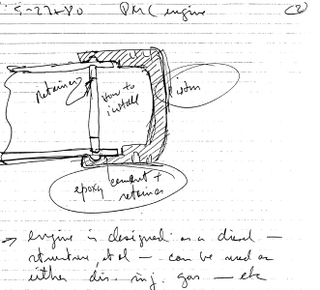 5-27-80 PMC engine (2)
Retainer
how to
install
epoxy cement +
retainer
→ engine is designed as a diesel —
structure, etc — can be used as
either dis. inj. gas — etc